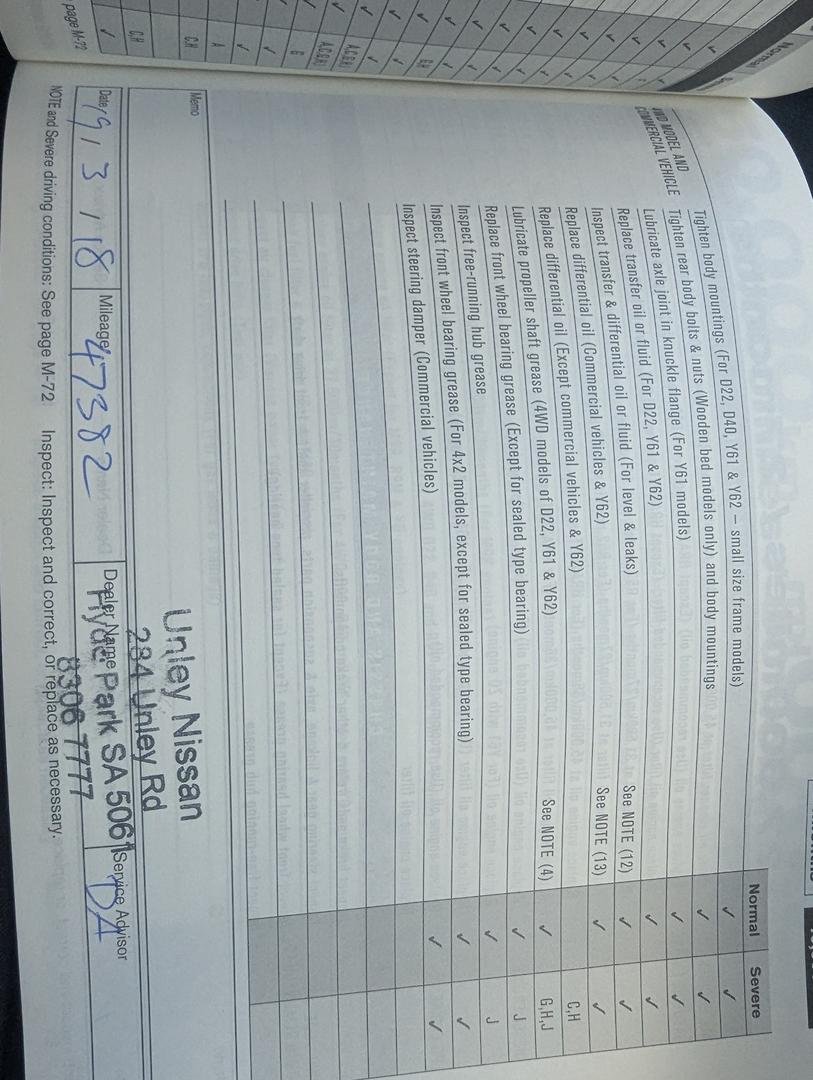 Normal Severe
4WD MODEL AND
COMMERCIAL VEHICLE
Tighten body mountings (For D22, D40, Y61 & Y62 – small size frame models) ✓ ✓
Tighten rear body bolts & nuts (Wooden bed models only) and body mountings ✓ ✓
Lubricate axle joint in knuckle flange (For Y61 models) ✓ ✓
Replace transfer oil or fluid (For D22, Y61 & Y62) ✓ ✓
Inspect transfer & differential oil or fluid (For level & leaks) See NOTE (12) ✓ ✓
Replace differential oil (Commercial vehicles & Y62) See NOTE (13) ✓ ✓
Replace differential oil (Except commercial vehicles & Y62) C,H
Lubricate propeller shaft grease (4WD models of D22, Y61 & Y62) See NOTE (4) ✓ G,H,J
Replace front wheel bearing grease (Except for sealed type bearing) ✓ J
Inspect free-running hub grease ✓ J
Inspect front wheel bearing grease (For 4x2 models, except for sealed type bearing) ✓ ✓
Inspect steering damper (Commercial vehicles) ✓ ✓
Memo
Unley Nissan
284 Unley Rd
Hyde Park SA 5061
8306 7777
Date 19/3/18 Mileage 47382 Dealer Name Service Advisor DA
NOTE and Severe driving conditions: See page M-72 Inspect: Inspect and correct, or replace as necessary.
page M-72